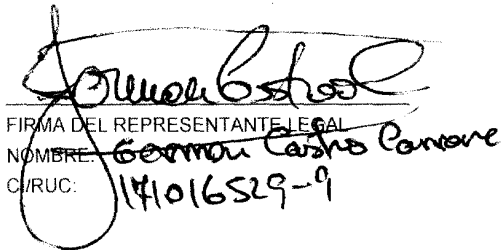 German Castro
FIRMA DEL REPRESENTANTE LEGAL
NOMBRE: German Castro
CI/RUC: 171016529-9